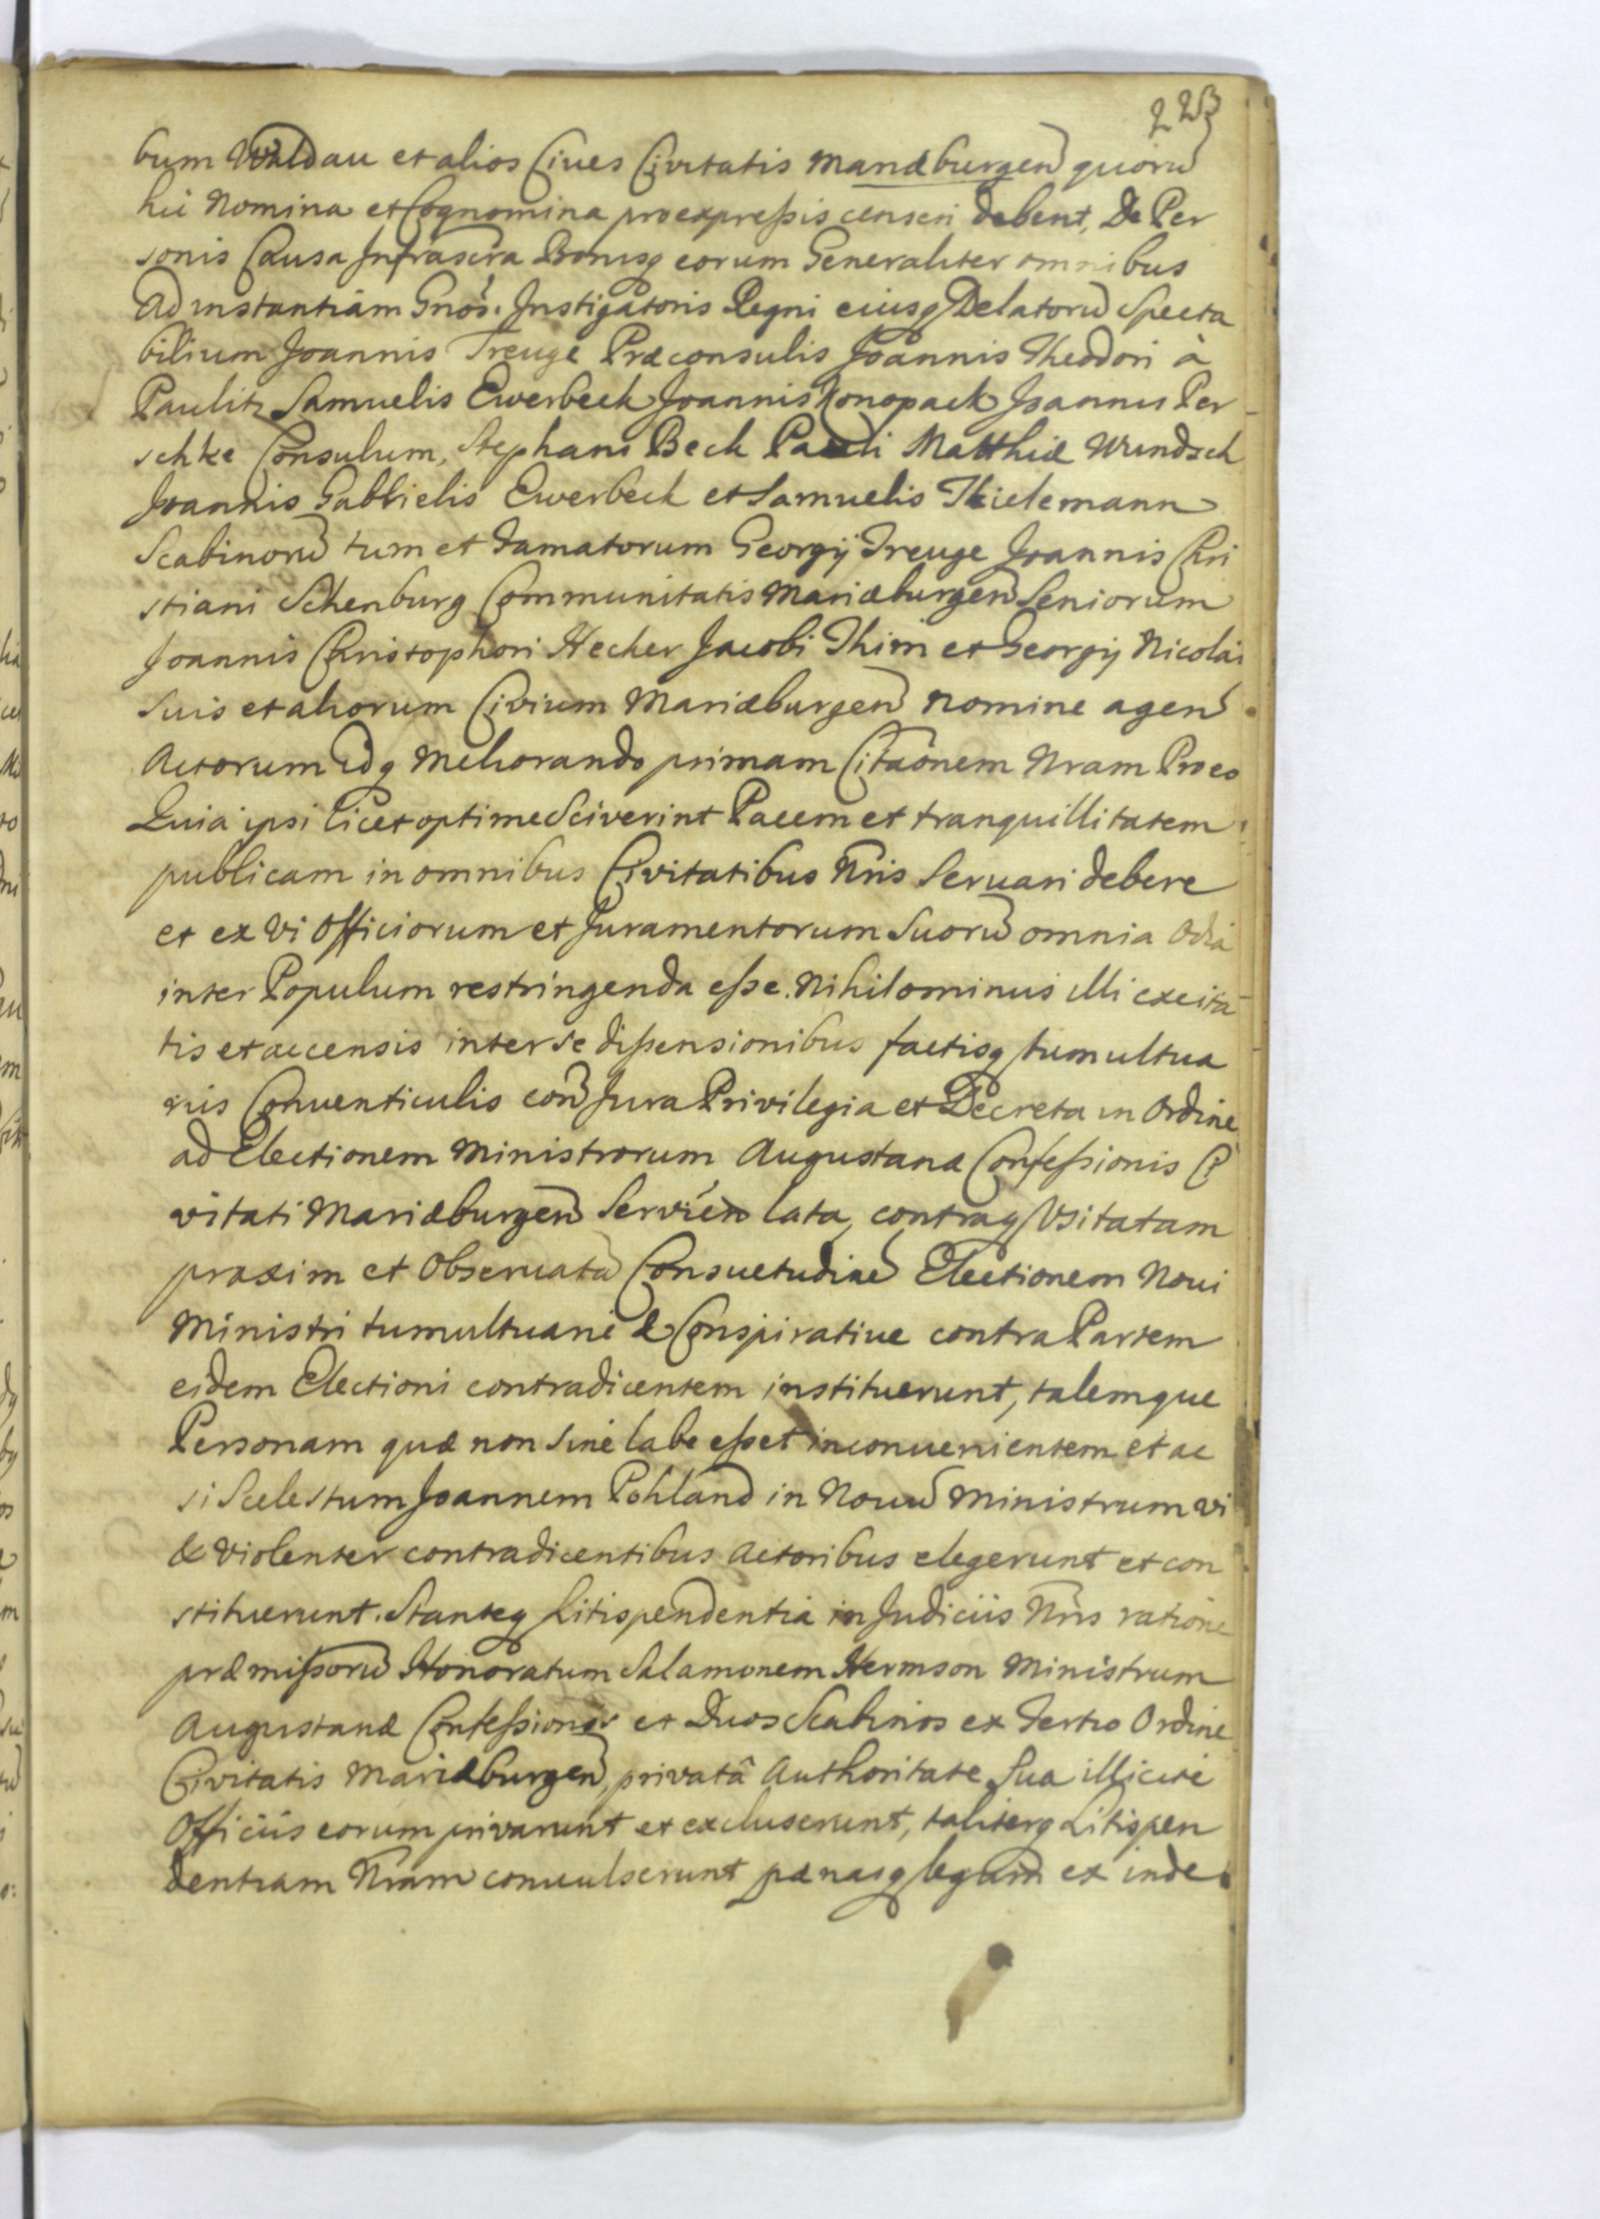 223
bum Waldau et alios Cives Civitatis Mariæburgen quorũ
hic Nomina et Cognomina pro expressis censeri debent, De Per
sonis Causa Infrascra Bonisq eorum Generaliter omnibus
Ad instantiam Gnosi Instigatoris Regni eiusq Delatorũ Specta
bilium Joannis Treuge Præconsulis Joannis Theodori à
Paulitz Samuelis Ewerbeck Joannis Konopack Joannis Per
schke Consulum, Stephani Beck Pauli Matthiæ Wundsch
Joannis Gabrielis Ewerbeck et Samuelis Thielemann
Scabinorũ tum et Famatorum Georgij Treuge Joannis Chri
stiani Schenburg Communitatis Mariæburgen Seniorum
Joannis Christophori Hecker Jacobi Thim et Georgij Nicolai
suis et aliorum Civium Mariæburgen nomine agen
Actorum Idq Meliorando primam Citaõnem Nram Pro eo
Quia ipsi licet optime Sciverint Pacem et tranquillitatem
publicam in omnibus Civitatibus Nris Servari debere
et ex vi Officiorum et Juramentorum Suorũ omnia Odia
inter Populum restringenda esse. Nihilominus illi excita
tis et accensis inter se dissensionibus factisq tumultua
riis Conventiculis con Jura Privilegia et Decreta in Ordine
ad Electionem Ministrorum Augustana Confessionis Ci
vitati Mariæburgen Servien lata, contraq Usitatam
praxim et Observatã Consuetudinẽ Electionem Novi
Ministri tumultuarie & Conspirative contra Partem
eidem Electioni contradicentem instituerunt, talemque
Personam quæ non sine labe esset inconvenientem et ac
si Scelestum Joannem Pohland in Novũ Ministrum vi
& violenter contradicentibus Actoribus elegerunt et con
stituerunt. Stanteq Litispendentia in Judiciis Nris ratione
præmissorũ Honoratum Salamonem Hermson Ministrum
Augustanæ Confessionis et Duos Scabinos ex Tertio Ordine
Civitatis Mariæburgen, privatâ Authoritate Sua illicite
Officiis eorum privarunt et excluserunt, taliterq Litispen
dentiam Nram convulserunt pænasq legum ex inde